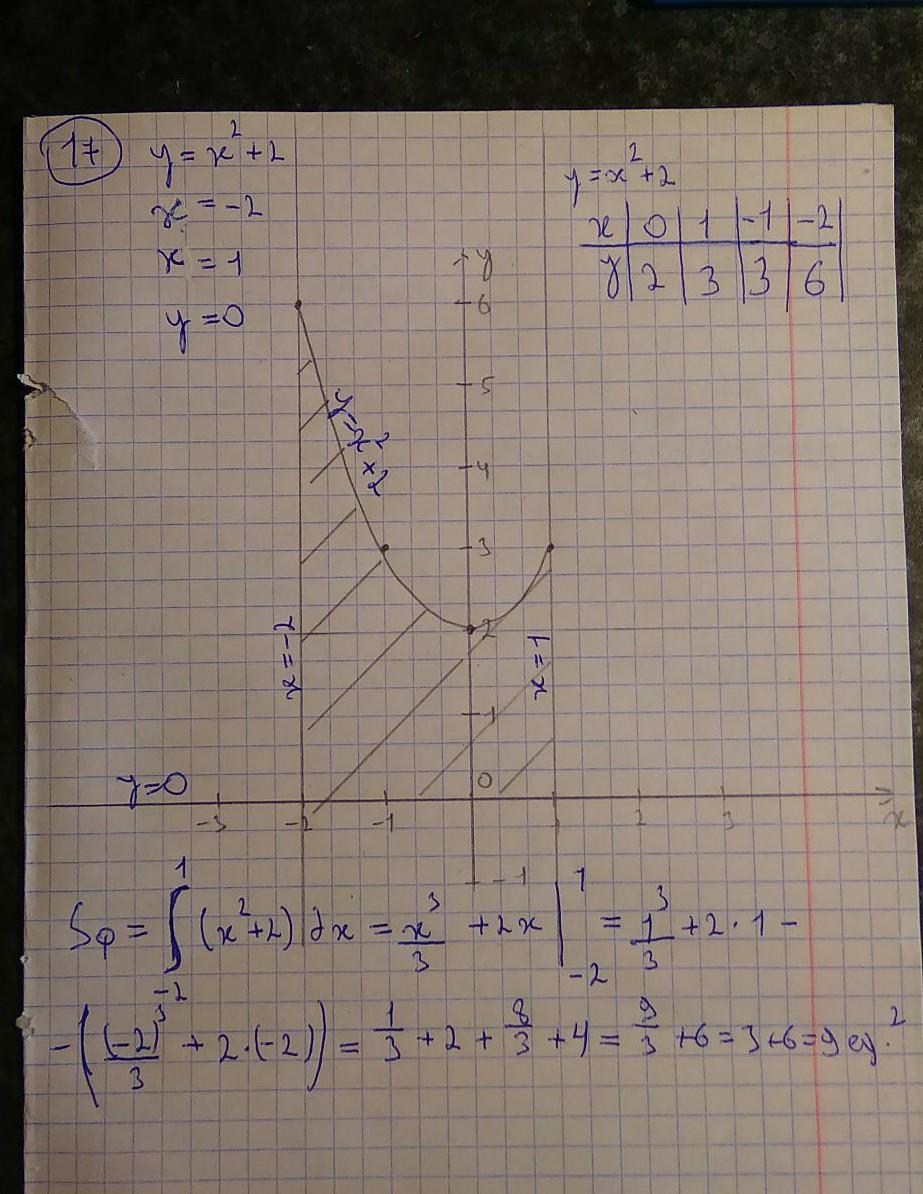 17
y = x² + 2
x = -2
x = 1
y = 0
y = x² + 2
x | 0 | 1 | -1 | -2
y | 2 | 3 | 3 | 6
y
6
5
4
3
2
1
0
-1
y = x² + 2
x = -2
x = 1
y = 0
-3 -2 -1 1 2 3 x
Sφ = ∫₋₂¹ (x² + 2) dx = x³/3 + 2x |₋₂¹ = 1³/3 + 2·1 -
- ((-2)³/3 + 2·(-2)) = 1/3 + 2 + 8/3 + 4 = 9/3 + 6 = 3 + 6 = 9 ед.²